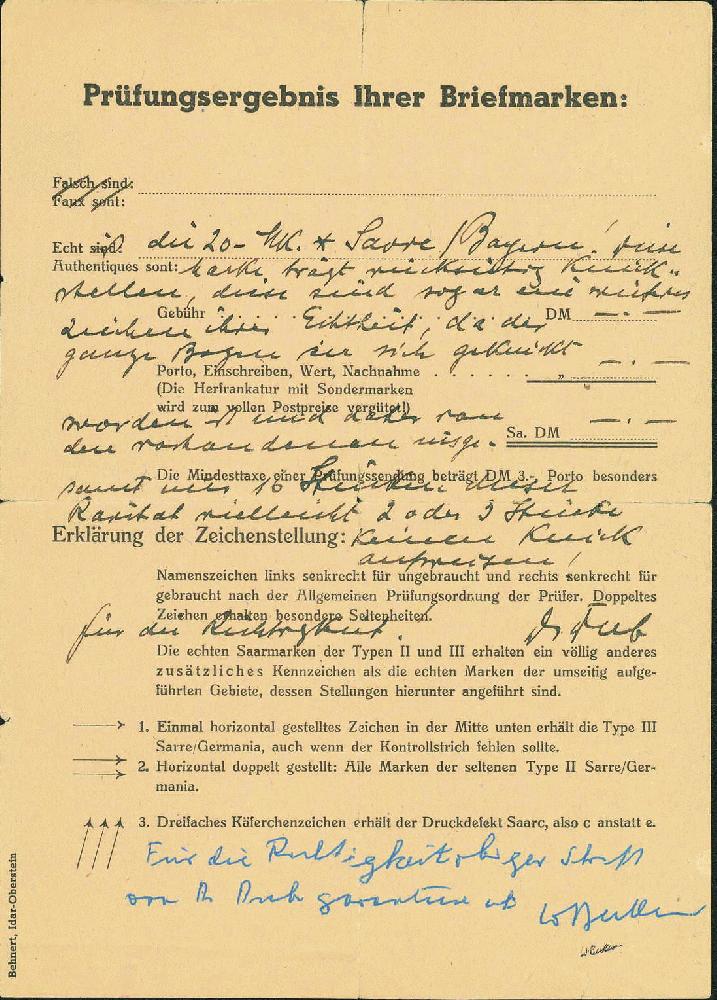 Prüfungsergebnis Ihrer Briefmarken:
Falsch sind:
Faux sont:
Echt sind: die 20- Mk. * Sarre / Bayern! Diese
Authentiques sont: Marke trägt rückseitig Knick-
stellen, diese sind sogar ein weiteres
Gebühr . . . . . . . . DM —.—
Zeichen ihrer Echtheit, da der
ganze Bogen an sich geknickt
Porto, Einschreiben, Wert, Nachnahme . . . . . „ —.—
(Die Herfrankatur mit Sondermarken
wird zum vollen Postpreise vergütet!)
worden ist und daher von —.—
Sa. DM
den vorhandenen insge-
Die Mindesttaxe einer Prüfungssendung beträgt DM 3.- Porto besonders
samt nur 16 Stücken dieser
Rarität vielleicht 2 oder 3 Stücke
Erklärung der Zeichenstellung: keinen Knick
aufweisen!
Namenszeichen links senkrecht für ungebraucht und rechts senkrecht für
gebraucht nach der Allgemeinen Prüfungsordnung der Prüfer. Doppeltes
Zeichen erhalten besondere Seltenheiten.
für die Richtigkeit. Dr Dub
Die echten Saarmarken der Typen II und III erhalten ein völlig anderes
zusätzliches Kennzeichen als die echten Marken der umseitig aufge-
führten Gebiete, dessen Stellungen hierunter angeführt sind.
1. Einmal horizontal gestelltes Zeichen in der Mitte unten erhält die Type III
Sarre/Germania, auch wenn der Kontrollstrich fehlen sollte.
2. Horizontal doppelt gestellt: Alle Marken der seltenen Type II Sarre/Ger-
mania.
3. Dreifaches Käferchenzeichen erhält der Druckdefekt Saarc, also c anstatt e.
Für die Richtigkeit obiger
von Dr Dub garantiere ich
Behnert, Idar-Oberstein